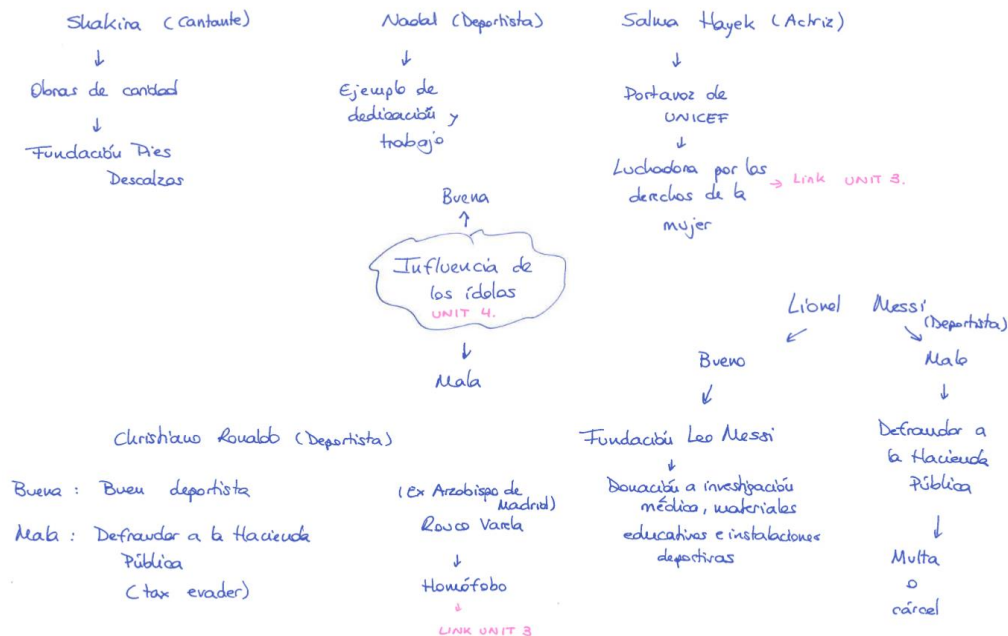 Shakira (Cantante)
Obras de caridad
Fundación Pies
Descalzos
Nadal (Deportista)
Ejemplo de
dedicación y
trabajo
Salma Hayek (Actriz)
Portavoz de
UNICEF
Luchadora por los
derechos de la
mujer
→ Link UNIT 3.
Buena
Influencia de
los ídolos
UNIT 4.
Mala
Lionel Messi
(Deportista)
Bueno
Fundación Leo Messi
Donación a investigación
médica, materiales
educativos e instalaciones
deportivas
Malo
Defraudar a
la Hacienda
Pública
Multa
o
cárcel
Christiano Ronaldo (Deportista)
Buena : Buen deportista
Mala : Defraudar a la Hacienda
Pública
(tax evader)
(Ex Arzobispo de
Madrid)
Rouco Varela
Homófobo
LINK UNIT 3